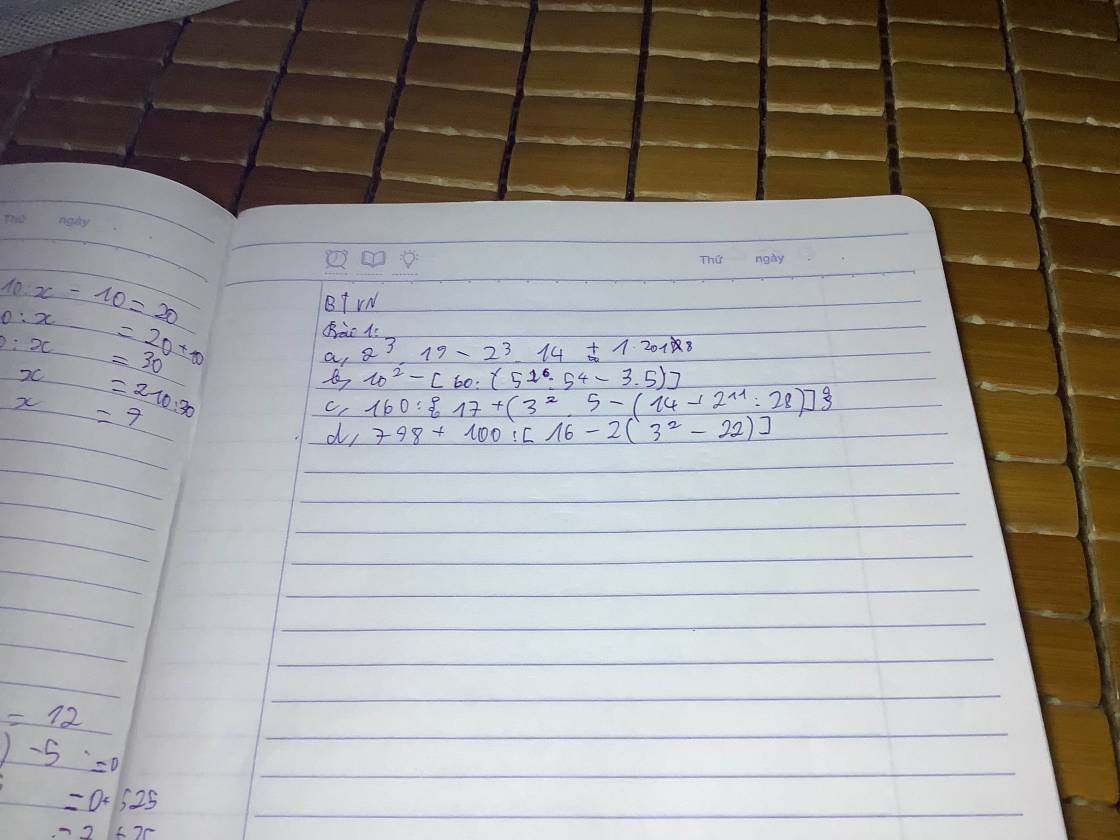 Thứ ngày
10:x - 10 = 20
0:x = 20 + 10
0:x = 30
x = 210:30
x = 7
= 12
) - 5 = 0
= 0 + 525
Thứ ngày
BTVN
Bài 1:
a, 2³ . 19 - 2³ . 14 + 1.2018
b, 10² - [60 : (5²⁶ : 5⁴ - 3.5)]
c, 160 : { 17 + (3² . 5 - (14 + 2¹¹ : 28)]}
d, 798 + 100 : [ 16 - 2( 3² - 22)]